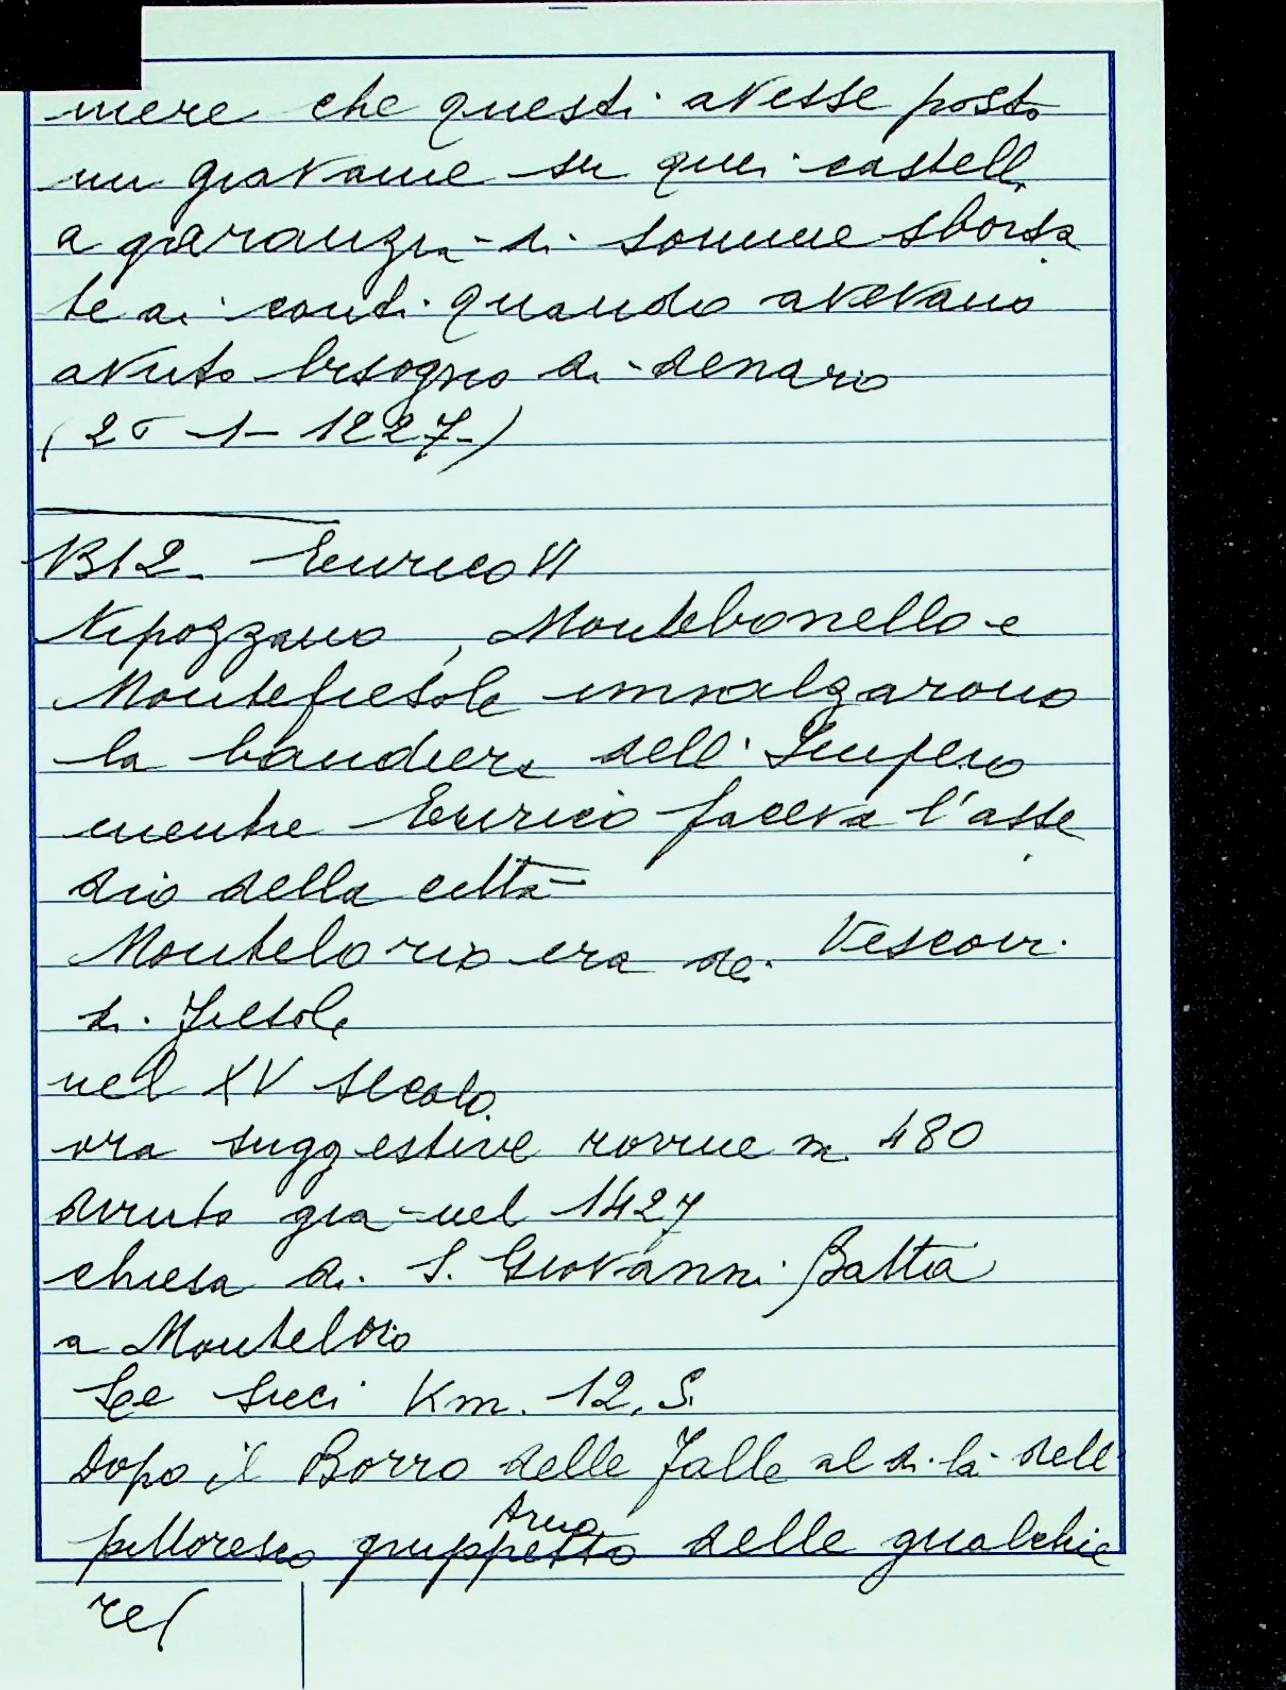 mere che questi avesse posto
un gravame su quei castelli
a garanzia di somme sborsa
te ai conti quando avevano
avuto bisogno di denaro
(25-1-1227-)
1312. Enrico VII
Nipozzano, Montebonello e
Montefiesole innalzarono
la bandiera dell'Impero
mentre Enrico faceva l'asse
dio della città
Monteloro era dei Vescovi
di Fiesole
nel XV secolo.
ora suggestive rovine m. 480
diruto già nel 1427
chiesa di S. Giovanni Batta
a Monteloro
Le Sieci Km. 12,5.
Dopo il Borro delle Falle al di là dell'
Arno
pittoresco gruppetto delle gualchie
re(